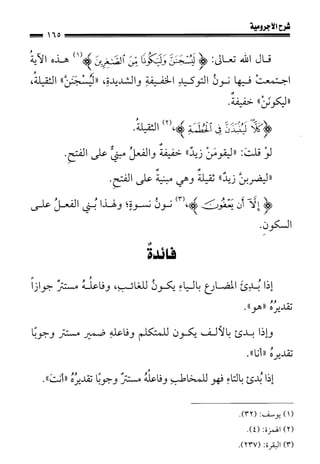 شرح الآجرومية
١٦٥
قال الله تعالى: ﴿ لَيُسْجَنَنَّ وَلَيَكُونًا مِّنَ الصَّاغِرِينَ ﴾(١) هذه الآيةُ
اجتمعتْ فيها نونُ التوكيدِ الخفيفةِ والشديدةِ، «لَيُسْجَنَنَّ» الثقيلة،
«ليكونَنْ» خفيفةٌ.
﴿ كَلَّا لَيُنبَذَنَّ فِي الْحُطَمَةِ ﴾(٢)، الثقيلةُ.
لوْ قلتَ: «ليقومَنْ زيدٌ» خفيفةٌ والفعلُ مبنيٌّ على الفتحِ.
«ليضربنَّ زيدٌ» ثقيلةٌ وهي مبنيةٌ على الفتحِ.
﴿ إِلَّا أَن يَعْفُونَ ﴾(٣)، نونُ نسوةٍ؛ ولهذا بُني الفعلُ على
السكونِ.
فائدةٌ
إذا بُدِئَ المضارع بالياءِ يكونُ للغائبِ، وفاعلُهُ مستترٌ جوازاً
تقديرُهُ «هو».
وإذا بدئ بالألف يكون للمتكلم وفاعله ضمير مستتر وجوبًا
تقديرهُ «أنا».
إذا بُدئ بالتاءِ فهو للمخاطبِ وفاعلُهُ مستترٌ وجوبًا تقديرُهُ «أنتَ».
(١) يوسف: (٣٢).
(٢) الهمزة: (٤).
(٣) البقرة: (٢٣٧).